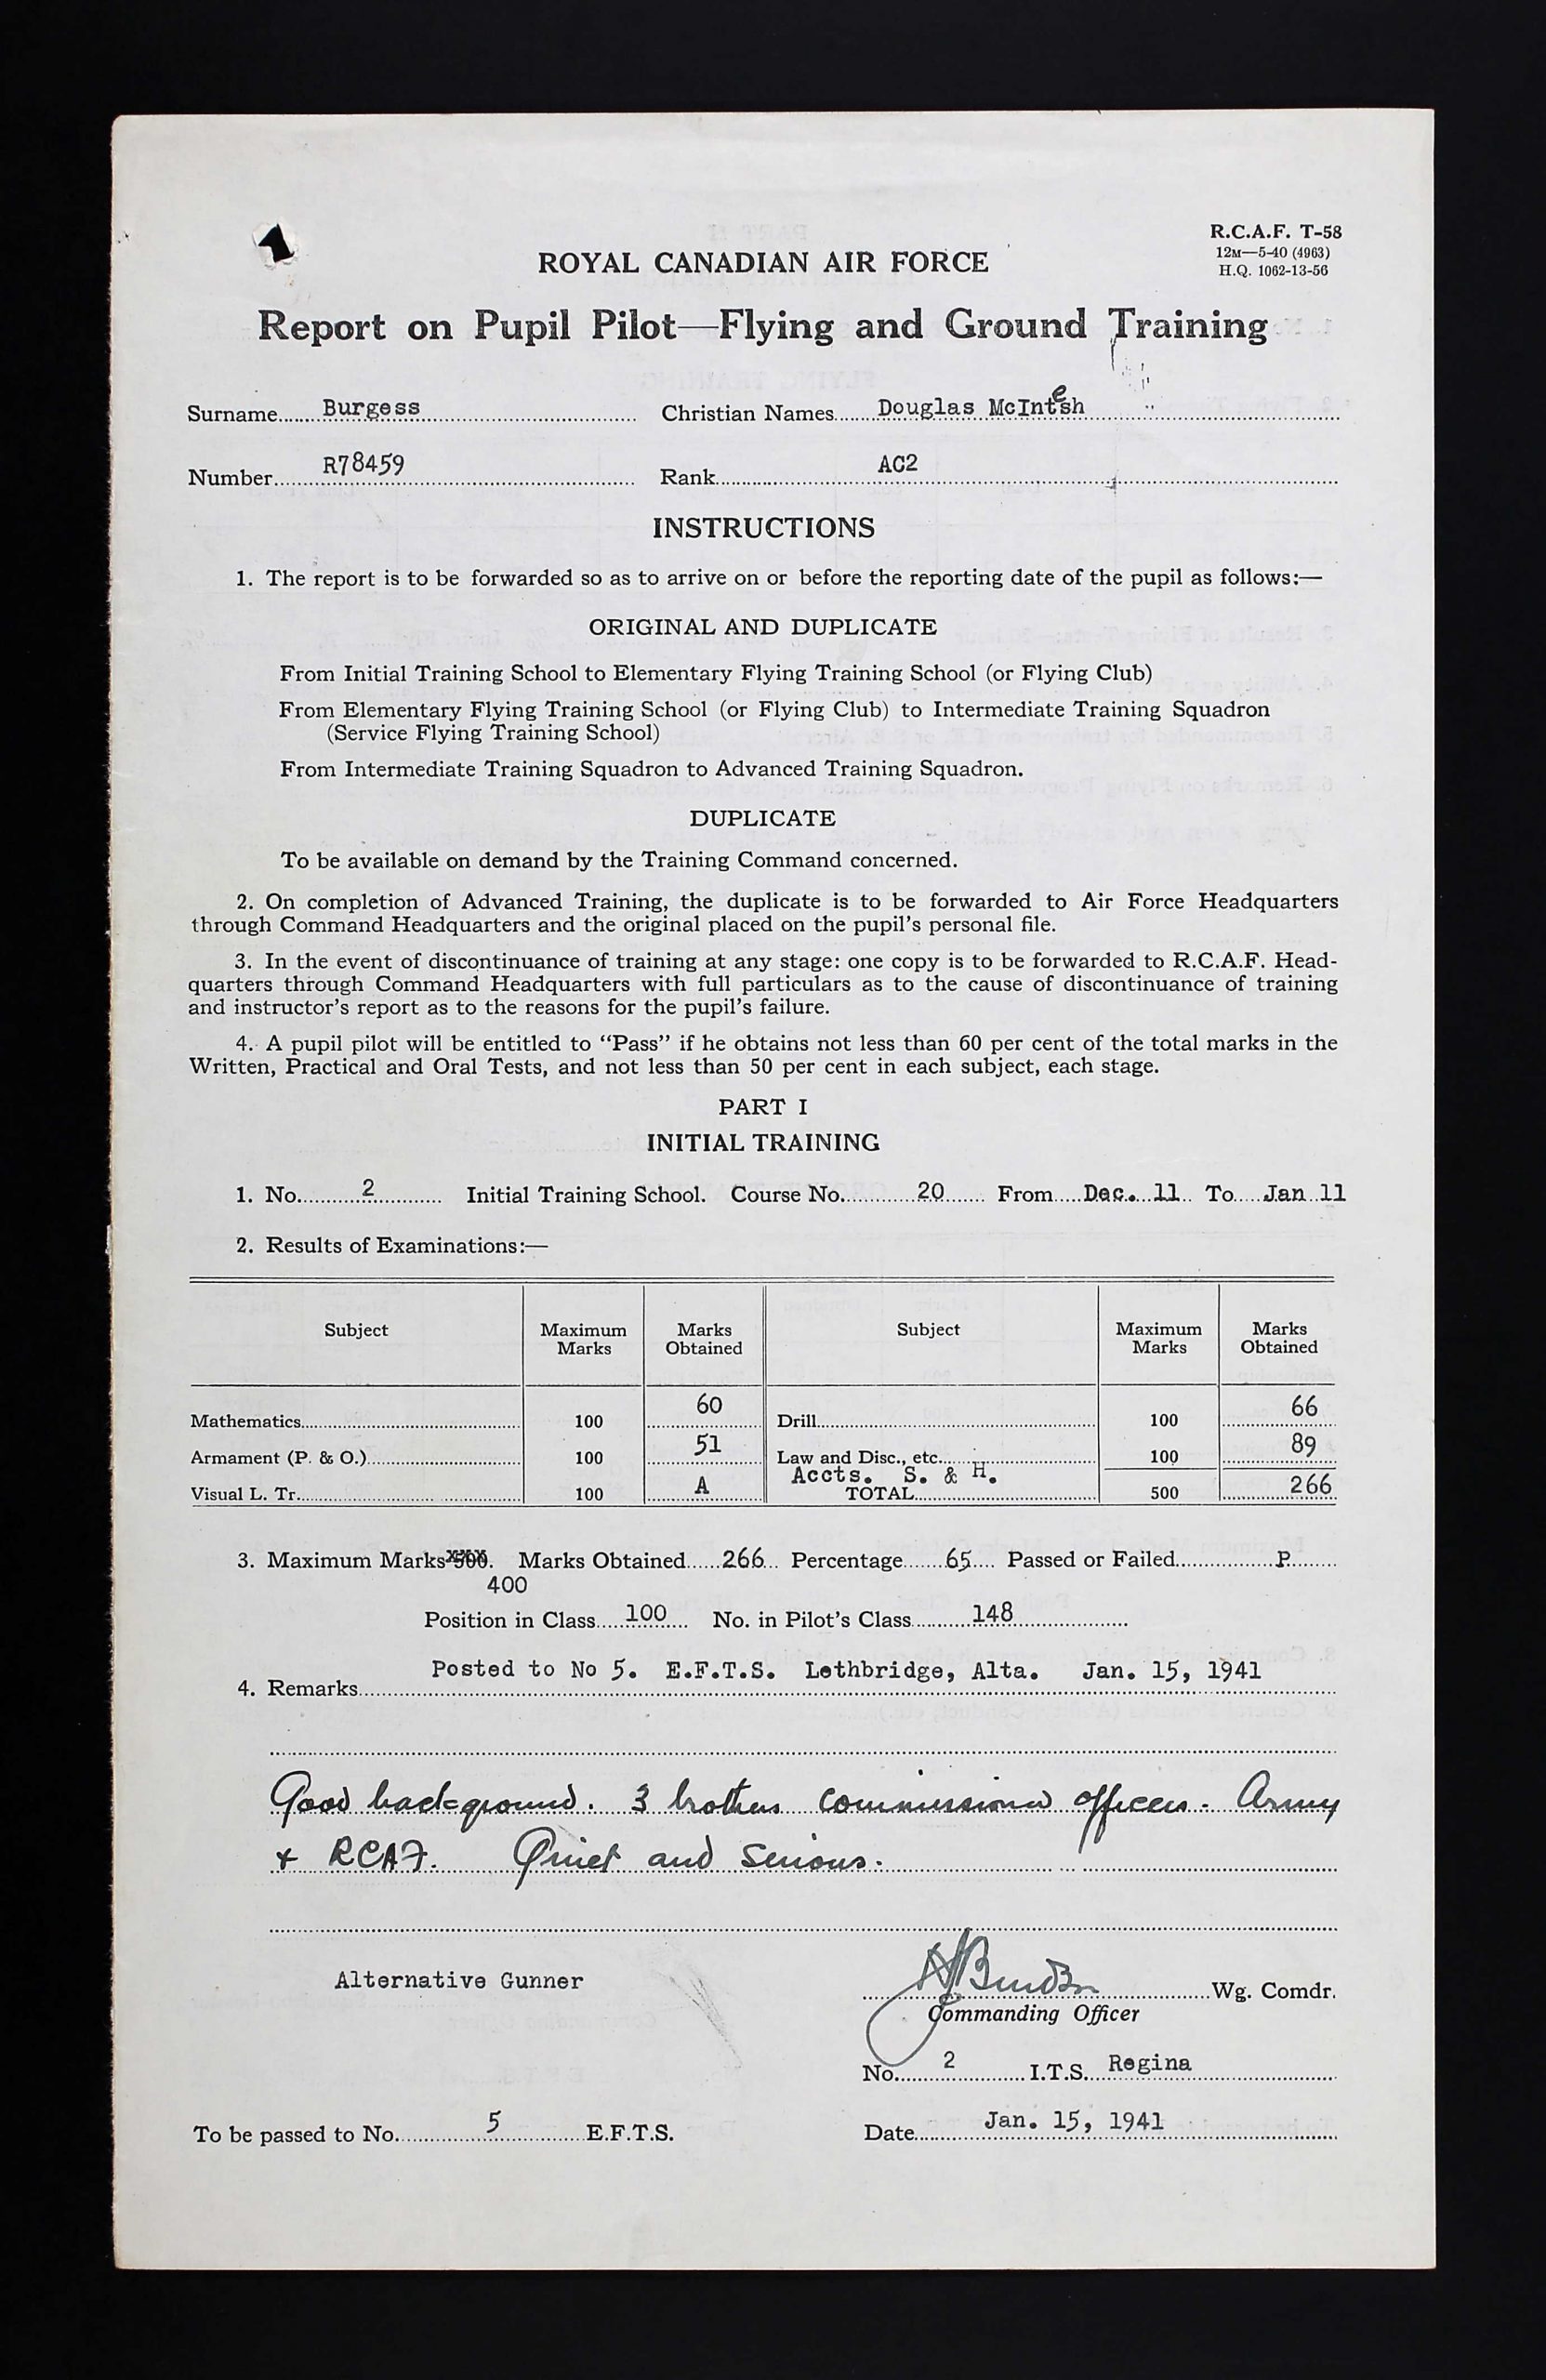 R.C.A.F. T-58
12M—5-40 (4963)
H.Q. 1062-13-56
ROYAL CANADIAN AIR FORCE
Report on Pupil Pilot—Flying and Ground Training
Surname Burgess Christian Names Douglas McIntesh
Number R78459 Rank AC2
INSTRUCTIONS
1. The report is to be forwarded so as to arrive on or before the reporting date of the pupil as follows:—
ORIGINAL AND DUPLICATE
From Initial Training School to Elementary Flying Training School (or Flying Club)
From Elementary Flying Training School (or Flying Club) to Intermediate Training Squadron
(Service Flying Training School)
From Intermediate Training Squadron to Advanced Training Squadron.
DUPLICATE
To be available on demand by the Training Command concerned.
2. On completion of Advanced Training, the duplicate is to be forwarded to Air Force Headquarters
through Command Headquarters and the original placed on the pupil's personal file.
3. In the event of discontinuance of training at any stage: one copy is to be forwarded to R.C.A.F. Head-
quarters through Command Headquarters with full particulars as to the cause of discontinuance of training
and instructor's report as to the reasons for the pupil's failure.
4. A pupil pilot will be entitled to "Pass" if he obtains not less than 60 per cent of the total marks in the
Written, Practical and Oral Tests, and not less than 50 per cent in each subject, each stage.
PART I
INITIAL TRAINING
1. No. 2 Initial Training School. Course No. 20 From Dec. 11 To Jan 11
2. Results of Examinations:—
Subject Maximum Marks Marks Obtained Subject Maximum Marks Marks Obtained
Mathematics 100 60 Drill 100 66
Armament (P. & O.) 100 51 Law and Disc., etc. 100 89
Accts. S. & H.
Visual L. Tr. 100 A TOTAL 500 266
3. Maximum Marks 500. Marks Obtained 266 Percentage 65 Passed or Failed P
400
Position in Class 100 No. in Pilot's Class 148
4. Remarks Posted to No 5. E.F.T.S. Lethbridge, Alta. Jan. 15, 1941
Good background. 3 brothers commissioned officers. Army
+ RCAF. Quiet and serious.
Alternative Gunner
Wg. Comdr.
Commanding Officer
No. 2 I.T.S. Regina
To be passed to No. 5 E.F.T.S. Date Jan. 15, 1941